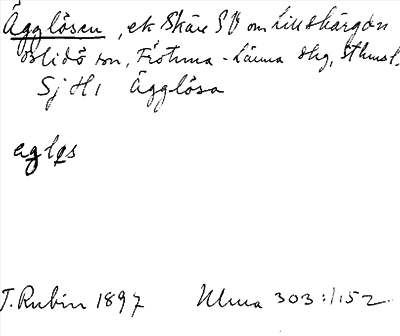 Ägglösen, ett Skär SV om Lillskärgårn
Blidö sn, Frötuna-Länna skg, Sthms l.
Sj H1 Ägglösa
ęglǫs
T. Rubin 1897 Ulma 303:1/152